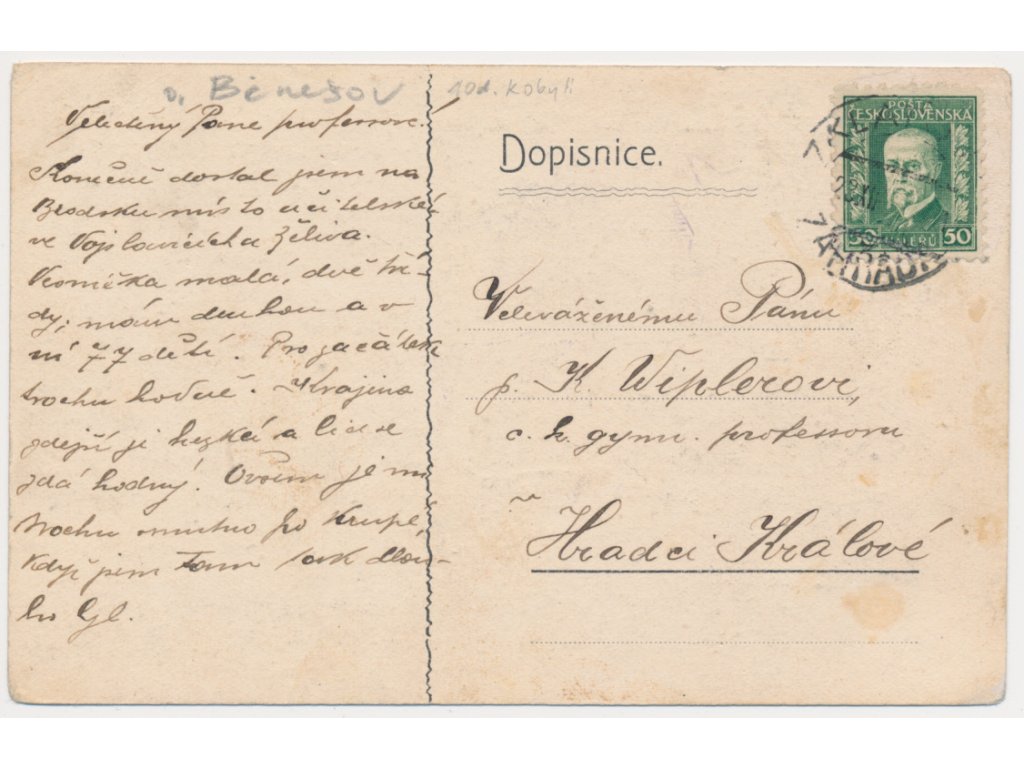 o. Benešov
pod. Kobylí
Velectěný Pane professore!
Konečně dostal jsem na
Brodsku místo učitelské
ve Vojslavicích u Želiva.
Vesnička malá, dvě tří-
dy; mám druhou a v
ní 77 dětí. Pro začátek
trochu hodně. Krajina
zdejší je hezká a lid se
zdá hodný. Ovšem je mi
trochu smutno po Krupé,
když jsem tam tak dlou-
ho byl.
Dopisnice.
POŠTA
ČESKOSLOVENSKÁ
50 HALÉRŮ 50
Veleváženému Pánu
p. K. Wiplerovi,
c. k. gymn. professoru
v
Hradci Králové